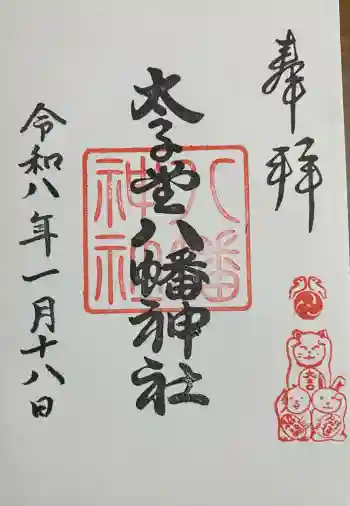 奉拝
太子堂八幡神社
八幡
神社
令和八年一月十八日